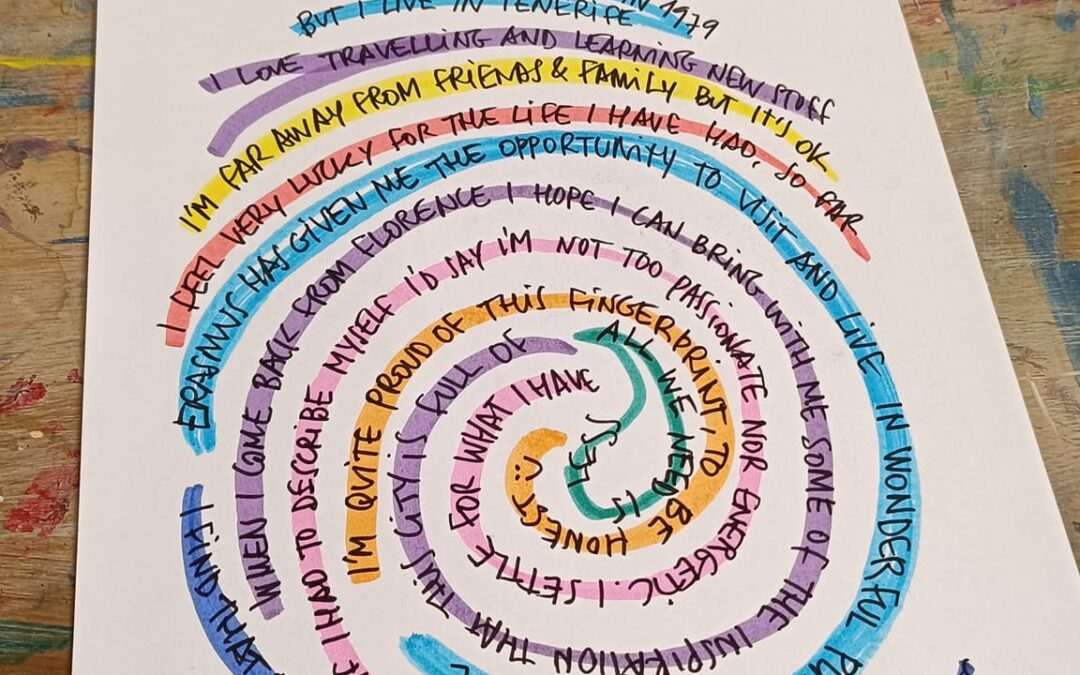 IN 1979
BUT I LIVE IN TENERIFE
I LOVE TRAVELLING AND LEARNING NEW STUFF
I'M FAR AWAY FROM FRIENDS & FAMILY BUT IT'S OK
I FEEL VERY LUCKY FOR THE LIFE I HAVE HAD, SO FAR
ERASMUS HAS GIVEN ME THE OPPORTUNITY TO VISIT AND LIVE IN WONDERFUL
WHEN I COME BACK FROM FLORENCE I HOPE I CAN BRING WITH ME SOME OF THE INSPIRATION THAT THIS CITY IS FULL OF
IF I HAD TO DESCRIBE MYSELF I'D SAY I'M NOT TOO PASSIONATE NOR ENERGETIC. I SETTLE FOR WHAT I HAVE
I'M QUITE PROUD OF THIS FINGERPRINT, TO BE HONEST Ü
ALL WE NEED IS LESS
I FIND THAT